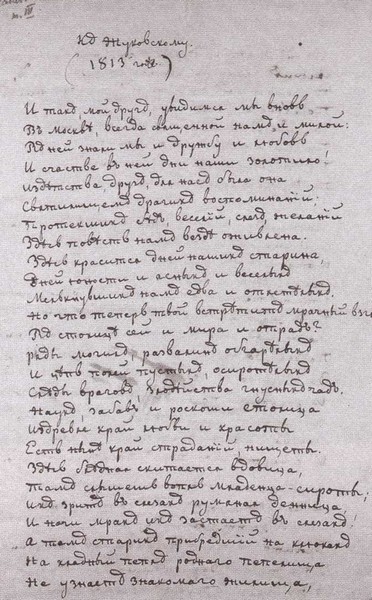 Къ Жуковскому.
(1813 годъ)
И такъ, мой другъ, увидимся мы вновь
Въ Москвѣ, всегда священной намъ и милой!
Въ ней знали мы и дружбу и любовь
И счастье въ ней дни наши золотило;
Изъ дѣтства, другъ, для насъ была она
Святилищемъ драгихъ воспоминаній;
Протекшихъ бѣдъ, веселій, слезъ, желаній
Здѣсь повѣсть намъ вездѣ оживлена.
Здѣсь красится дней нашихъ старина,
Дней юности и ясныхъ и веселыхъ
Мелькнувшихъ намъ едва и отлетѣлыхъ.
Но что теперь твой встрѣтитъ мрачный
Въ столицѣ сей и мира и отрадъ?
Ряды могилъ, развалинъ обгорѣлыхъ
И цѣпь полей пустыхъ, осиротѣлыхъ
Слѣды враговъ злодѣйства гнусныхъ чадъ.
Наукъ забавъ и роскоши столица
Издревле край любви и красоты
Есть нынѣ край страданій, нищеты.
Здѣсь бѣдная скитается вдовица,
Тамъ слышенъ вопль младенца-сироты;
Ихъ зритъ въ слезахъ румяная денница
И ночи мракъ ихъ застаетъ въ слезахъ!
А тамъ старикъ прибредшій на клюкахъ
На хладный пепелъ роднаго пепелища
Не узнаетъ знакомаго жилища,